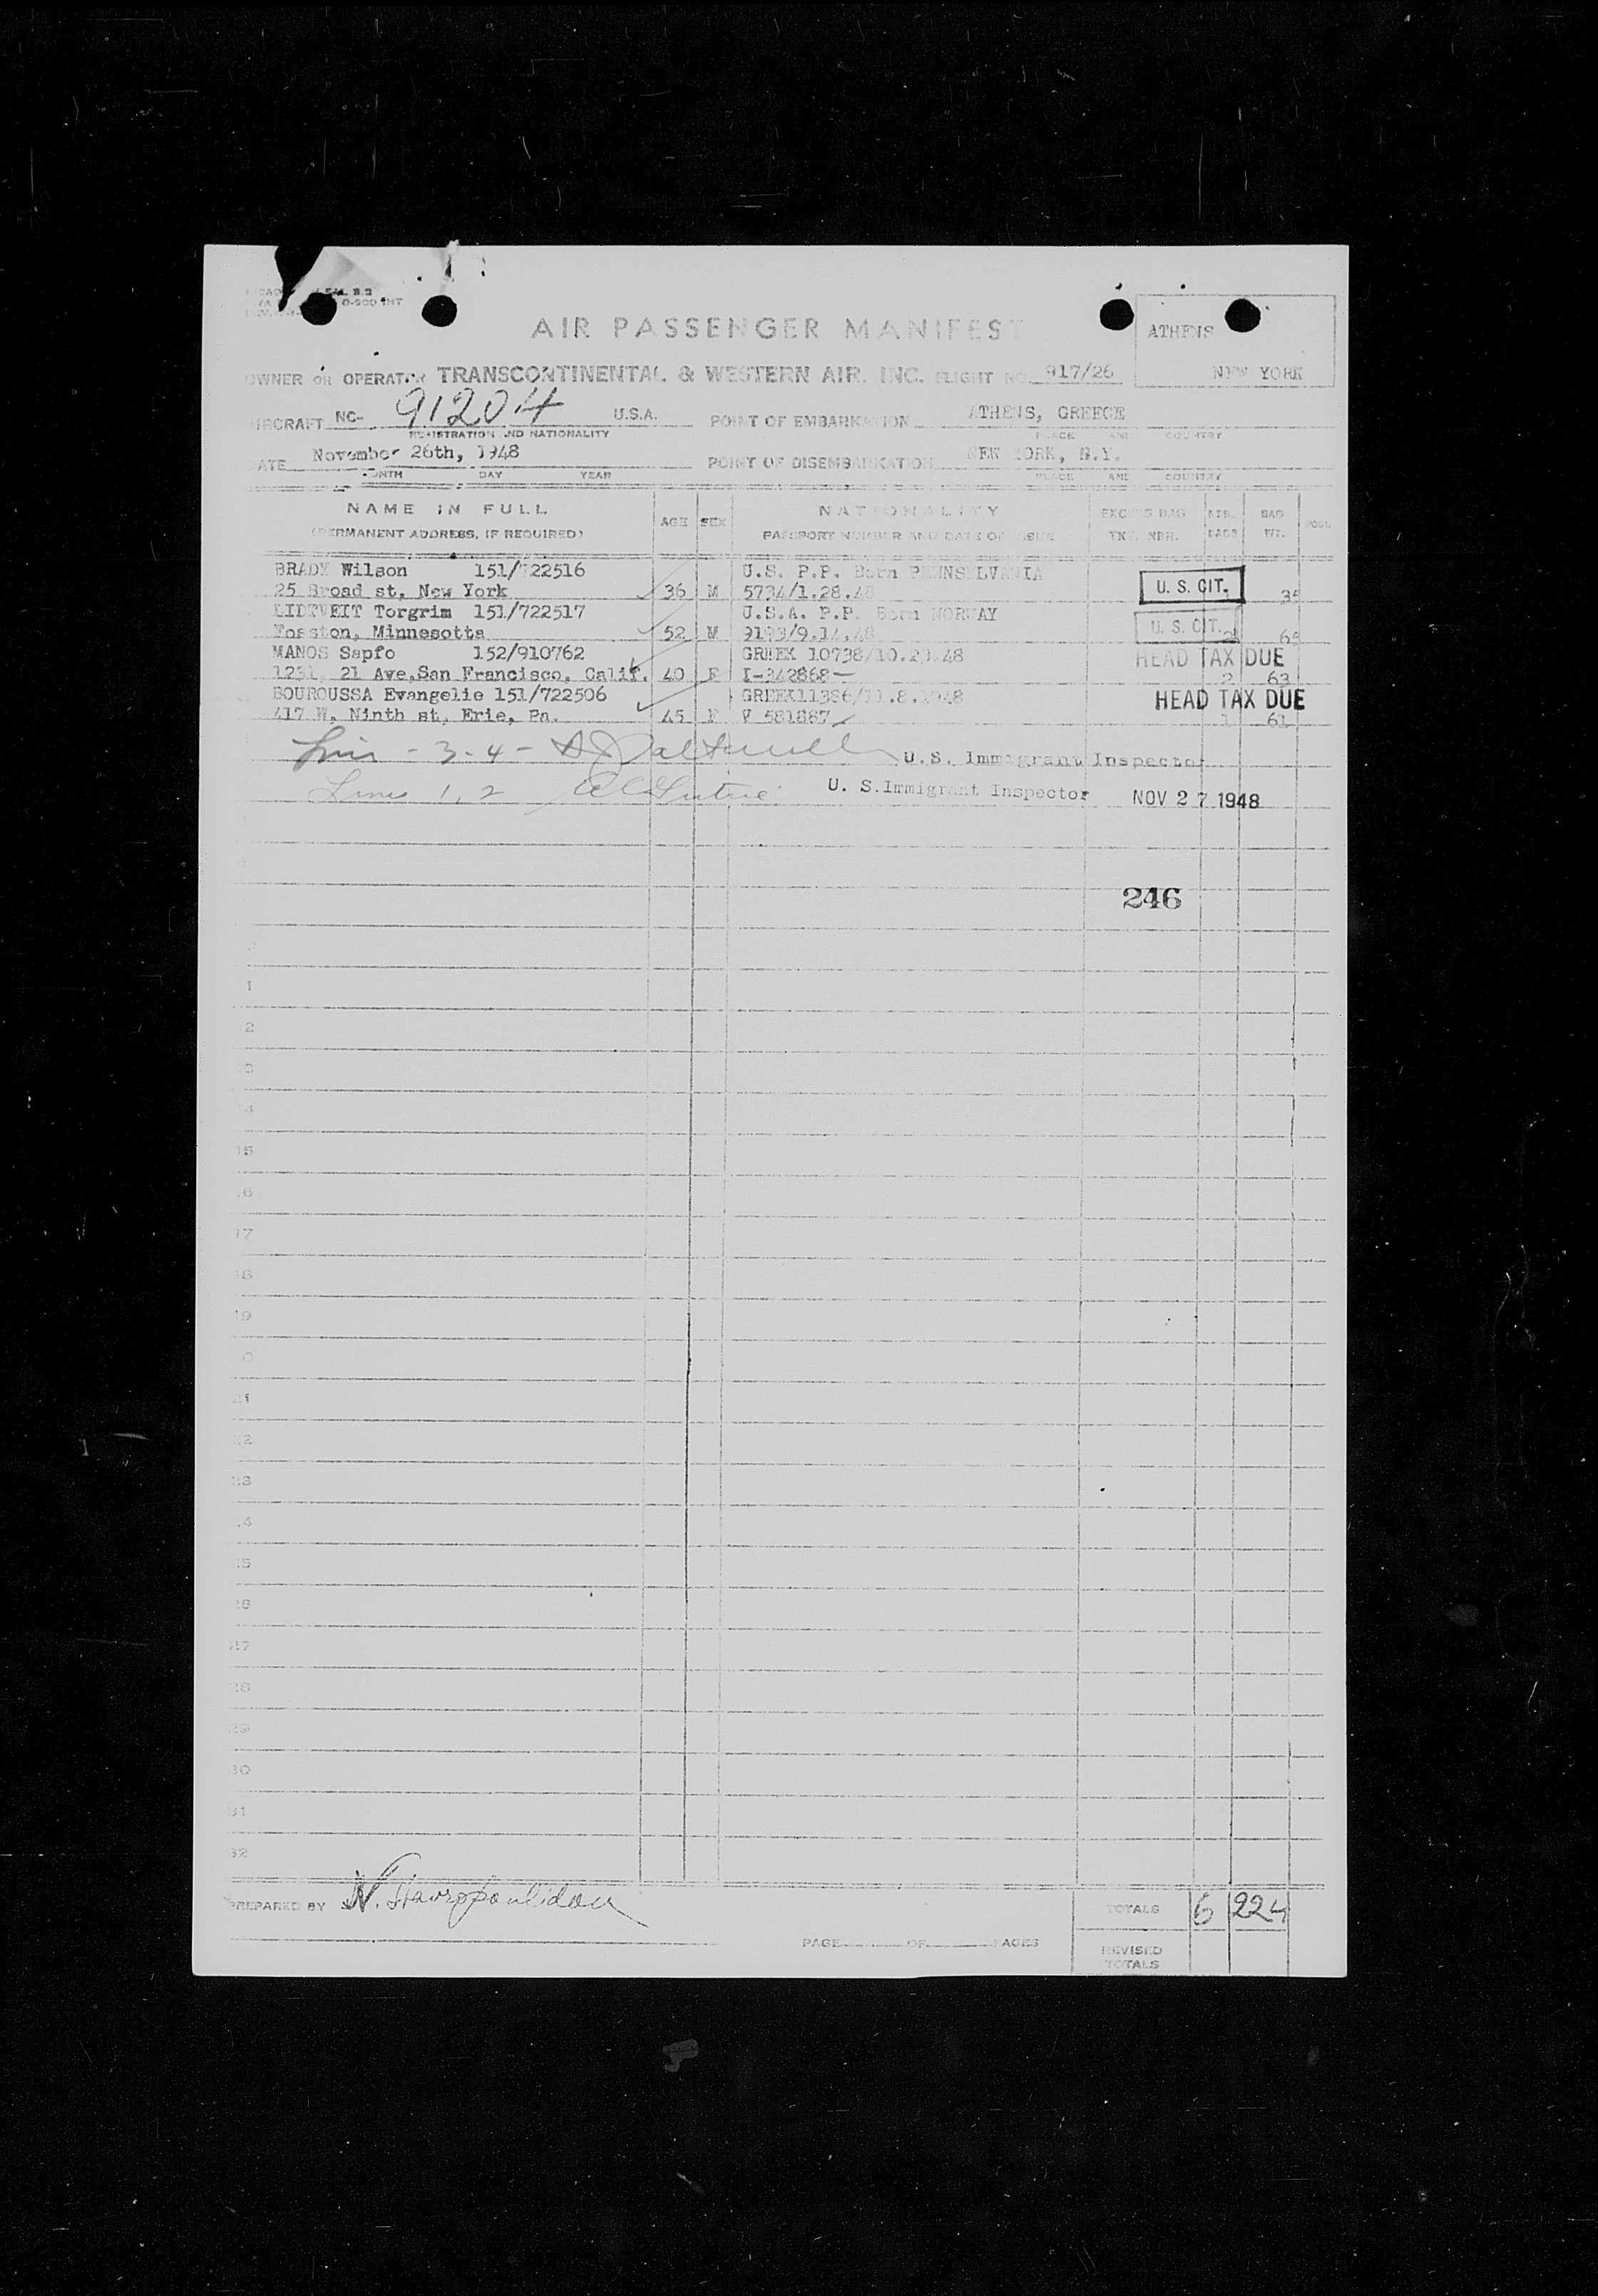 AIR PASSENGER MANIFEST
ATHENS
NEW YORK
OWNER OR OPERATOR TRANSCONTINENTAL & WESTERN AIR, INC. FLIGHT NO. 917/26
AIRCRAFT NC- 91204 U.S.A. POINT OF EMBARKATION ATHENS, GREECE
REGISTRATION AND NATIONALITY PLACE AND COUNTRY
DATE November 26th, 1948 POINT OF DISEMBARKATION NEW YORK, N.Y.
MONTH DAY YEAR PLACE AND COUNTRY
NAME IN FULL AGE SEX NATIONALITY EXCESS BAG BAG
(PERMANENT ADDRESS, IF REQUIRED) PASSPORT NUMBER AND DATE OF ISSUE TKT. NBR. BAGS WT.
BRADY Wilson 151/722516 U.S. P.P. Born PENNSYLVANIA
25 Broad st, New York 36 M 5734/1.28.48 U. S. CIT. 1 35
LIDTVEIT Torgrim 151/722517 U.S.A. P.P. Born NORWAY
Fosston, Minnesotta 52 M U. S. CIT. 2
MANOS Sapfo 152/910762 GREEK HEAD TAX DUE
21 Ave,San Francisco, Calif. 40 F I-342868 2 63
BOUROUSSA Evangelie 151/722506 GREEK11386/11.8.1948 HEAD TAX DUE
417 W, Ninth st, Erie, Pa. 45 F V 581887 1 61
Line - 3-4 - U.S. Immigrant Inspector
Lines 1, 2 U. S.Immigrant Inspector NOV 27 1948
246
1
2
3
4
15
16
17
18
19
0
21
22
23
24
25
26
27
28
29
30
31
32
PREPARED BY N. Stavropoulidou TOTALS 6 224
PAGE OF PAGES REVISED
TOTALS